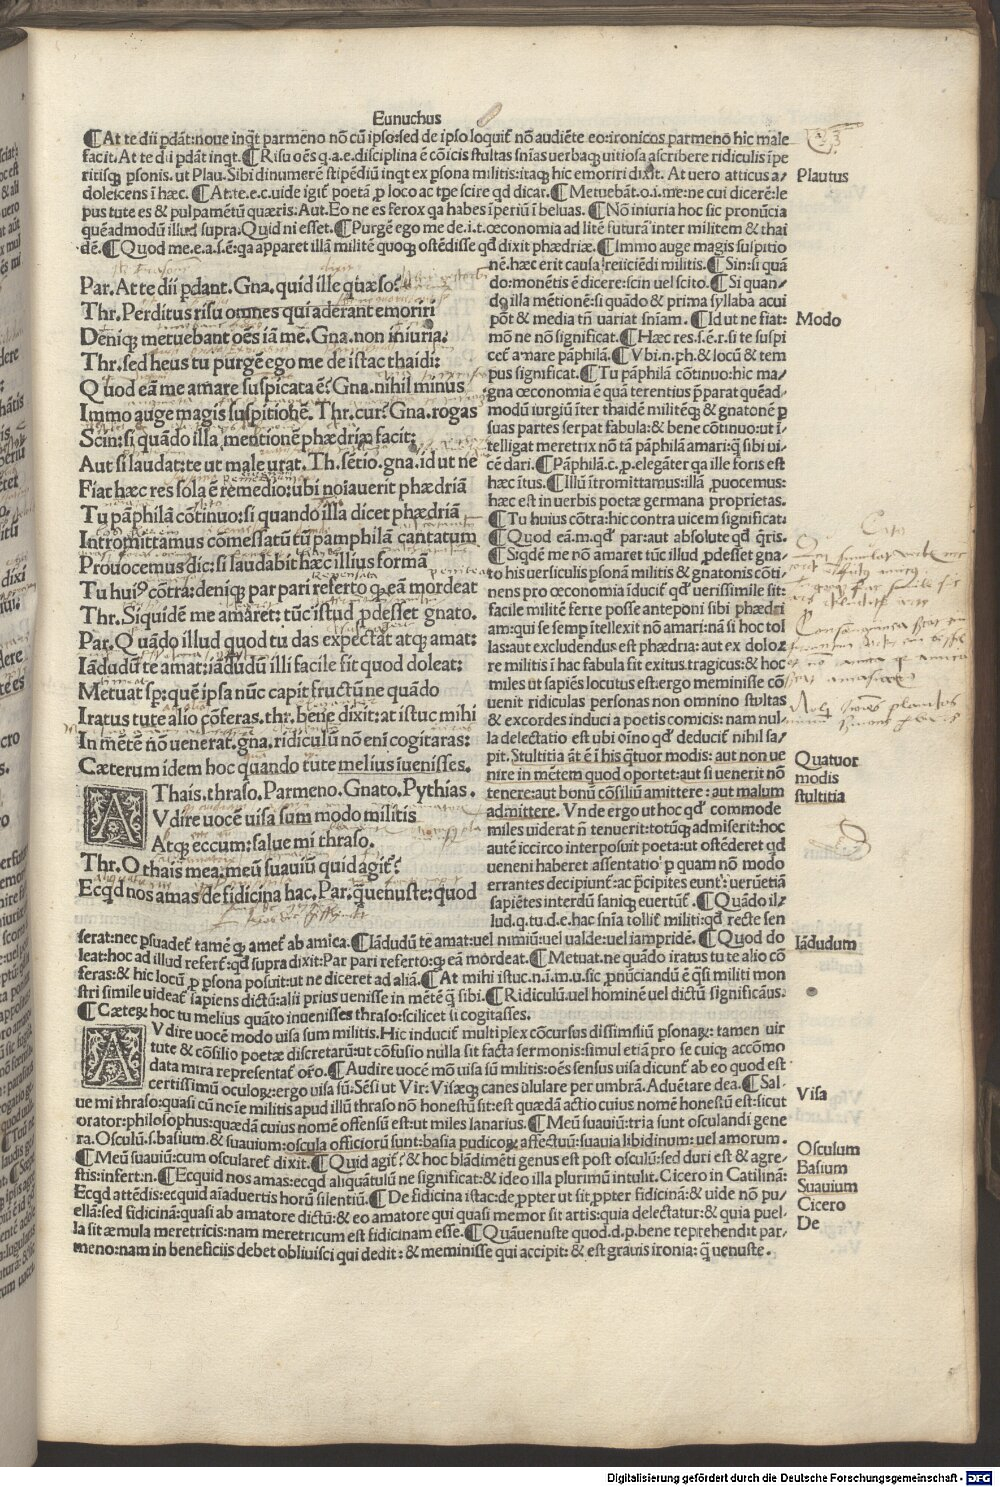 Eunuchus
¶At te dii ꝑdāt: noue inqͥt parmeno nō cū ipso: sed de ipso loquiť nō audiēte eo: ironicos parmeno hic male
facit. At te dii ꝑdāt inqt. ¶Risu oēs q. a. e. disciplina ē cōicis stultas snīas uerbaqꝫ uitiosa ascribere ridiculis īpe
ritisqꝫ ꝑsonis. ut Plau. Sibi dinumerē stipēdiū inqt ex ꝑsona militis: itaqꝫ hic emoriri dixit. At uero atticus a/
dolescens ī hæc. ¶At. te. e. c. uide igiť poetā ꝑ loco ac tpe scire qd dicar. ¶Metuebāt. o. i. me: ne cui dicerē: le
pus tute es & pulpamētū quæris. Aut. Eo ne es ferox qa habes īperiū ī beluas. ¶Nō iniuria hoc sic pronūcia
quēadmodū illud supra. Quid ni esset. ¶Purgē ego me de. i. t. œconomia ad litē futurā inter militem & thai
dē. ¶Quod me. e. a. s. ē: qa apparet illā militē quoqꝫ ostēdisse qd dixit phædriæ. ¶Immo auge magis suspitio
Par. At te dii ꝑdant. Gna. quid ille quæso?
Thr. Perditus risu omnes qui aderant emoriri
Deniqꝫ metuebant oēs iā me. Gna. non iniuria.
Thr. sed heus tu purgē ego me de istac thaidi:
Quod eā me amare suspicata ē? Gna. nihil minus
Immo auge magis suspitionē. Thr. cur? Gna. rogas
Scin: si quādo illa mentionē phædriæ facit:
Aut si laudat: te ut male urat. Th. sētio. gna. id ut ne
Fiat hæc res sola ē remedio: ubi noiauerit phædriā
Tu pāphilā cōtinuo: si quando illa dicet phædriā
Intromittamus cōmessatū tū pamphilā cantatum
Prouocemus dic: si laudabit hæc illius formā
Tu huiꝰ cōtra: deniqꝫ par pari referto qꝫ eā mordeat
Thr. Siquidē me amaret: tūc istud ꝓdesset gnato.
Par. Quādo illud quod tu das expectat atqꝫ amat:
Iādudū te amat: iādudū illi facile fit quod doleat:
Metuat sꝑ: quē ipsa nūc capit fructū ne quādo
Iratus tute alio cōferas. thr. bene dixit: at istuc mihi
In mētē nō uenerat. gna. ridiculū nō eni cogitaras:
Cæterum idem hoc quando tute melius iuenisses.
Thais. thraso. Parmeno. Gnato. Pythias.
AVdire uocē uisa sum modo militis
Atqꝫ eccum: salue mi thraso.
Thr. O thais mea. meū suauiū quid agiť?
Ecqd nos amas de fidicina hac. Par. quenuste: quod
nē. hæc erit causa reiiciēdi militis. ¶Sin: si quā
do: monētis ē dicere: scin uel scito. ¶Si quan/
do illa mētionē: si quādo & prima syllaba acui
pōt & media tñ uariat sniam. ¶Id ut ne fiat:
mō ne nō significat. ¶Hæc res. s. ē. r. si te suspi
ceť amare pāphilā. ¶Vbi. n. ph. & locū & tem
pus significat. ¶Tu pāphilā cōtinuo: hic ma/
gna œconomia ē qua terentius ꝑparat quēad/
modū iurgiū īter thaidē militēqꝫ & gnatonē ꝑ
suas partes serpat fabula: & bene cōtinuo: ut ī/
telligat meretrix nō tā pāphilā amari: q̄ sibi ui/
cē dari. ¶Pāphilā. c. ꝑ. elegāter qa ille foris est
hæc ītus. ¶Illū ītromittamus: illā ꝓuocemus:
hæc est in uerbis poetæ germana proprietas.
¶Tu huius cōtra: hic contra uicem significat.
¶Quod eā. m. qd par: aut absolute qd q̄ris.
¶Siqdē me nō amaret tūc illud ꝓdesset gna/
to his uersiculis ꝑsonā militis & gnatonis cōti/
nens pro œconomia iduciť qd uerissimile sit:
facile militē ferre posse anteponi sibi phædri
am: qui se semꝑ ītellexit nō amari: nā si hoc tol
las: aut excludendus est phædria: aut ex dolo/
re militis ī hac fabula fit exitus tragicus: & hoc
miles ut sapiēs locutus est: ergo meminisse cō
uenit ridiculas personas non omnino stultas
& excordes induci a poetis comicis: nam nul/
la delectatio est ubi oīno qd deduciť nihil sa/
pit. Stultitia āt ē ī his qtuor modis: aut non ue
nire in mētem quod oportet: aut si uenerit nō
tenere: aut bonū cōsiliū amittere: aut malum
admittere. Vnde ergo ut hoc qd commode
miles uiderat ñ tenuerit: totūqꝫ admiserit: hoc
autē iccirco interposuit poeta: ut ostēderet qd
ueneni haberet assentatio ꝑ quam nō modo
errantes decipiunť: ac ꝑcipites eunť: uerūetiā
sapiētes interdū saniqꝫ euertūť. ¶Quādo il/
lud. q. tu. d. e. hac snīa tolliť militi: qd recte sen
serat: nec ꝑsuadeť tamē qꝫ ameť ab amica. ¶Iādudū te amat: uel nimiū: uel ualde: uel iampridē. ¶Quod do
leat: hoc ad illud referť: qd supra dixit: Par pari referto: qꝫ eā mordeat. ¶Metuat. ne quādo iratus tu te alio cō
feras: & hic locū ꝑ ꝑsona posuit: ut ne diceret ad aliā. ¶At mihi istuc. n. i. m. u. sic ꝓnūciandū ē q̄si militi mon
stri simile uideať sapiens dictū: alii prius uenisse in mētē q̄ sibi. ¶Ridiculū. uel hominē uel dictū significāus.
¶Cæteꝝ hoc tu melius quāto inuenisses thraso: scilicet si cogitasses.
AVdire uocē modo uisa sum militis. Hic induciť multiplex cōcursus dissimiliū ꝑsonaꝝ: tamen uir
tute & cōsilio poetæ discretarū: ut cōfusio nulla sit facta sermonis: simul etiā pro se cuiqꝫ accōmo
data mira representať oro. ¶Audire uocē mō uisa sū militis: oēs sensus uisa dicunť ab eo quod est
certissimū oculoꝝ: ergo uisa sū. Sēsi ut Vir. Visæqꝫ canes ululare per umbrā. Aduētare dea. ¶Sal/
ue mi thraso: quasi cū nc ie militis apud illū thraso nō honestū sit: est quædā actio cuius nomē honestū est: sicut
orator: philosophus: quædā cuius nomē offensū est: ut miles lanarius. ¶Meū suauiū: tria sunt osculandi gene
ra. Osculū. s. basium. & suauium: oscula officiorū sunt: basia pudicoꝝ affectuū: suauia libidinum: uel amorum.
¶Meū suauiū: cum osculareť dixit. ¶Quid agiť? & hoc blādimēti genus est post osculū: sed duri est & agre/
stis: infert: n. ¶Ecquid nos amas: ecqd aliquātulū ne significat: & ideo illa plurimū intulit. Cicero in Catilinā:
Ecqd attēdis: ecquid aīaduertis horū silentiū. ¶De fidicina istac: de. ꝓpter ut sit. ꝓpter fidicinā: & uide nō pu/
ellā: sed fidicinā: quasi ab amatore dictū: & eo amatore qui quasi memor sit artis: quia delectatur: & quia puel/
la sit æmula meretricis: nam meretricum est fidicinam esse. ¶Quāuenuste quod. d. p. bene reprehendit par/
meno: nam in beneficiis debet obliuisci qui dedit: & meminisse qui accipit: & est grauis ironia: q̄ uenuste.
Plautus
Modo
Quatuor
modis
stultitia
Iādudum
Visa
Osculum
Basium
Suauium
Cicero
De
Digitalisierung gefördert durch die Deutsche Forschungsgemeinschaft - DFG